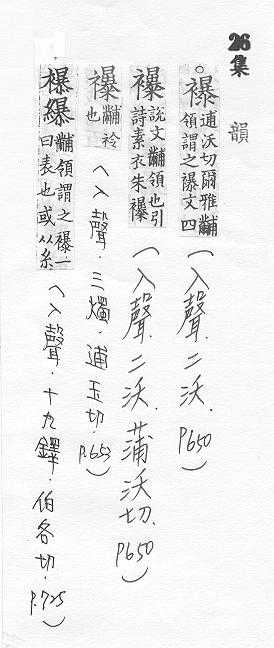 26
集
韻
。襮 逋沃切爾雅黼
領謂之襮文四
(入聲.二沃.p650)
襮 說文黼領也引
詩素衣朱襮
(入聲.二沃.蒲沃切.p650)
襮 黼衿
也
(入聲.三燭.逋玉切.p.653)
襮䌟 黼領謂之襮一
曰表也或从糸
(入聲.十九鐸.伯各切.p.725)